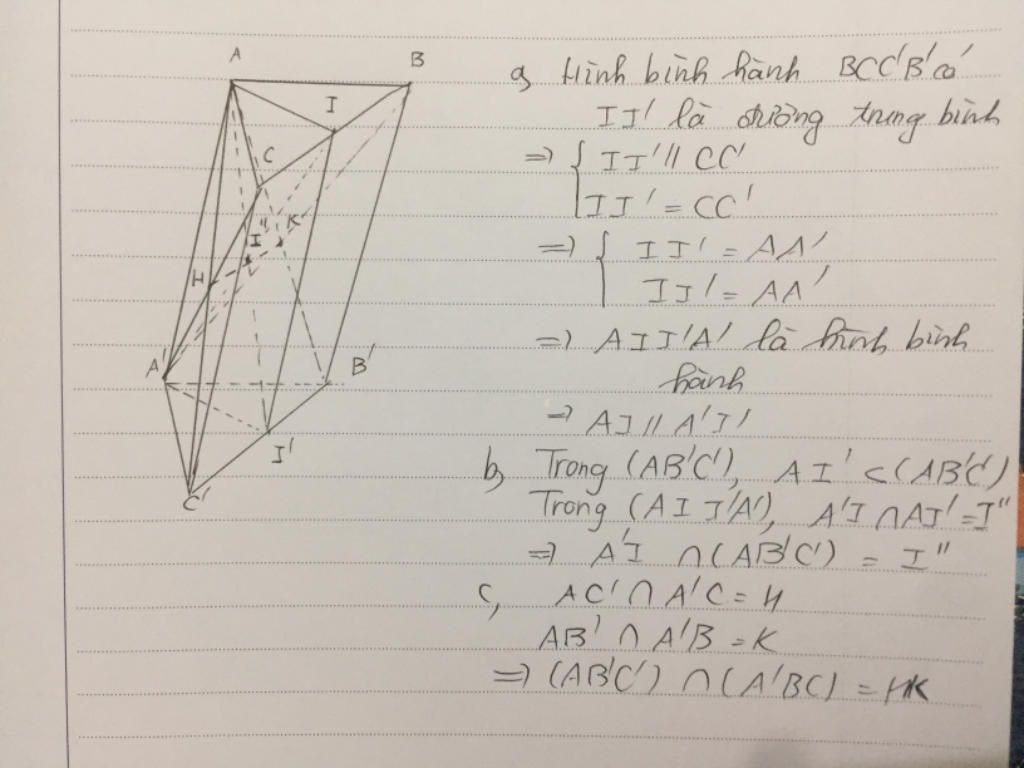 A
B
I
C
I"
K
H
A'
B'
I'
C'
a, Hình bình hành BCC'B' có
II' là đường trung bình
=> { II' // CC'
II' = CC'
=> { II' = AA'
II' = AA'
=> AII'A' là hình bình
hành
=> AI // A'I'
b, Trong (AB'C'), AI' ⊂ (AB'C')
Trong (AII'A'), A'I ∩ AI' = I"
=> A'I ∩ (AB'C') = I"
c, AC' ∩ A'C = H
AB' ∩ A'B = K
=> (AB'C') ∩ (A'BC) = HK